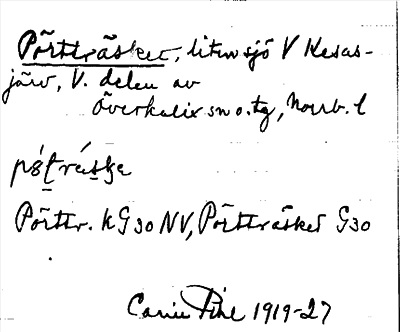 Pörtträsket, liten sjö V Kesas-
järv, V. delen av
Överkalix sn o. tg, Norrb. l
Pörttr. k G30 NV, Pörtträsket G30
Carin Pihl 1919-27